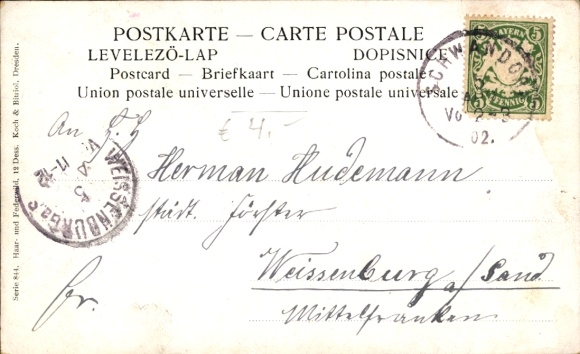 POSTKARTE — CARTE POSTALE
LEVELEZÖ-LAP DOPISNICE
Postcard — Briefkaart — Cartolina postale
Union postale universelle — Unione postale universale
BAYERN
5 5
5 PFENNIG 5
SCHWANDORF
02.
€ 4.-
An
Herman Hudemann
städt. Förster
Weissenburg a/Sand
Mittelfranken
fr.
WEISSENBURG a. S.
V. 11-12
Serie 844, Haar- und Federwild, 12 Dess. Koch & Bitriol, Dresden.